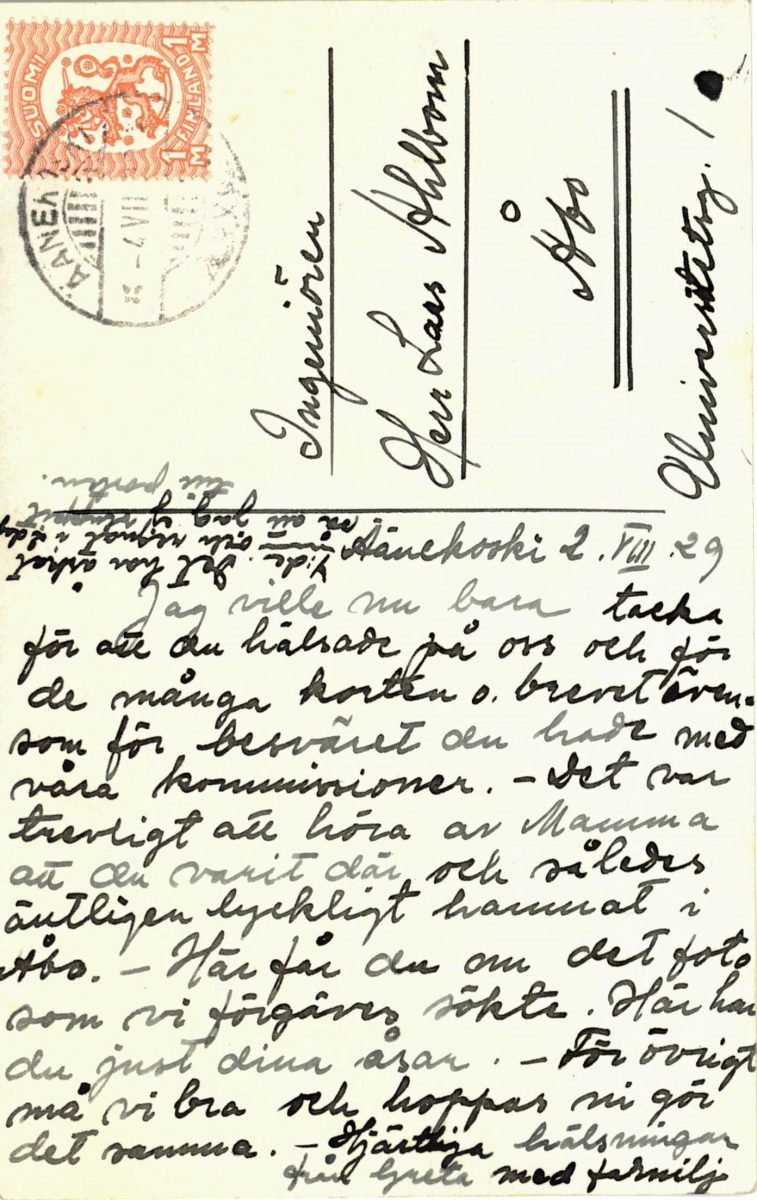 SUOMI FINLAND
1 M 1 M
ÄÄNEK
4 VIII
Ingeniören
Herr Lars Ahlbom
Åbo
Universitetsg. 1
Äänekoski 2. VIII. 29
Jag ville nu bara tacka
för att du hälsade på oss och för
de många korten o. brevet även-
som för besväret du hade med
våra kommissioner. – Det var
trevligt att höra av Mamma
att du varit där och således
äntligen lyckligt hamnat i
Åbo. – Här får du nu det foto
som vi förgäves sökte. Här har
du just dina åsar. – För övrigt
må vi bra och hoppas ni gör
det samma. – Hjärtliga hälsningar
från Greta med familj
Det har åskat
och regnat i
så att jag ej sluppit
till posten.